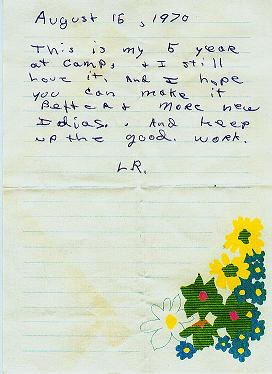 August 16, 1970
This is my 5 year
at camp, + I still
love it. And I hope
you can make it
Better + more new
Idias. And keep
up the good. work.
L.R.